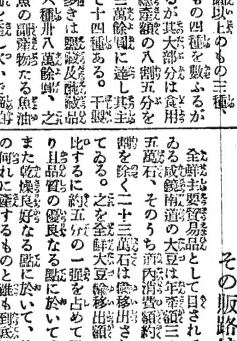 その販路は
全鮮主要貿易品として目され
ゐる咸鏡南道の大豆は年産額三
五萬石、そのうち道內消費額約
割を除く二十三萬石は輸移出さ
てゐる。之を全鮮大豆輸移出額
比するに約五分の一强を占めて
り且品質の優良なる點に於いて、
また乾燥良好なる點に於いて、
の何れに要するものと雖も到底
額以上のもの三種、
もの四種を數ふるが
が其大部分は食用
總産額の八割五分を
三萬餘圓に達し其主
て十四種ある。干製
多きは鹽藏及醱酵品
八種卅八萬餘圓、之
魚の副産物たる魚油